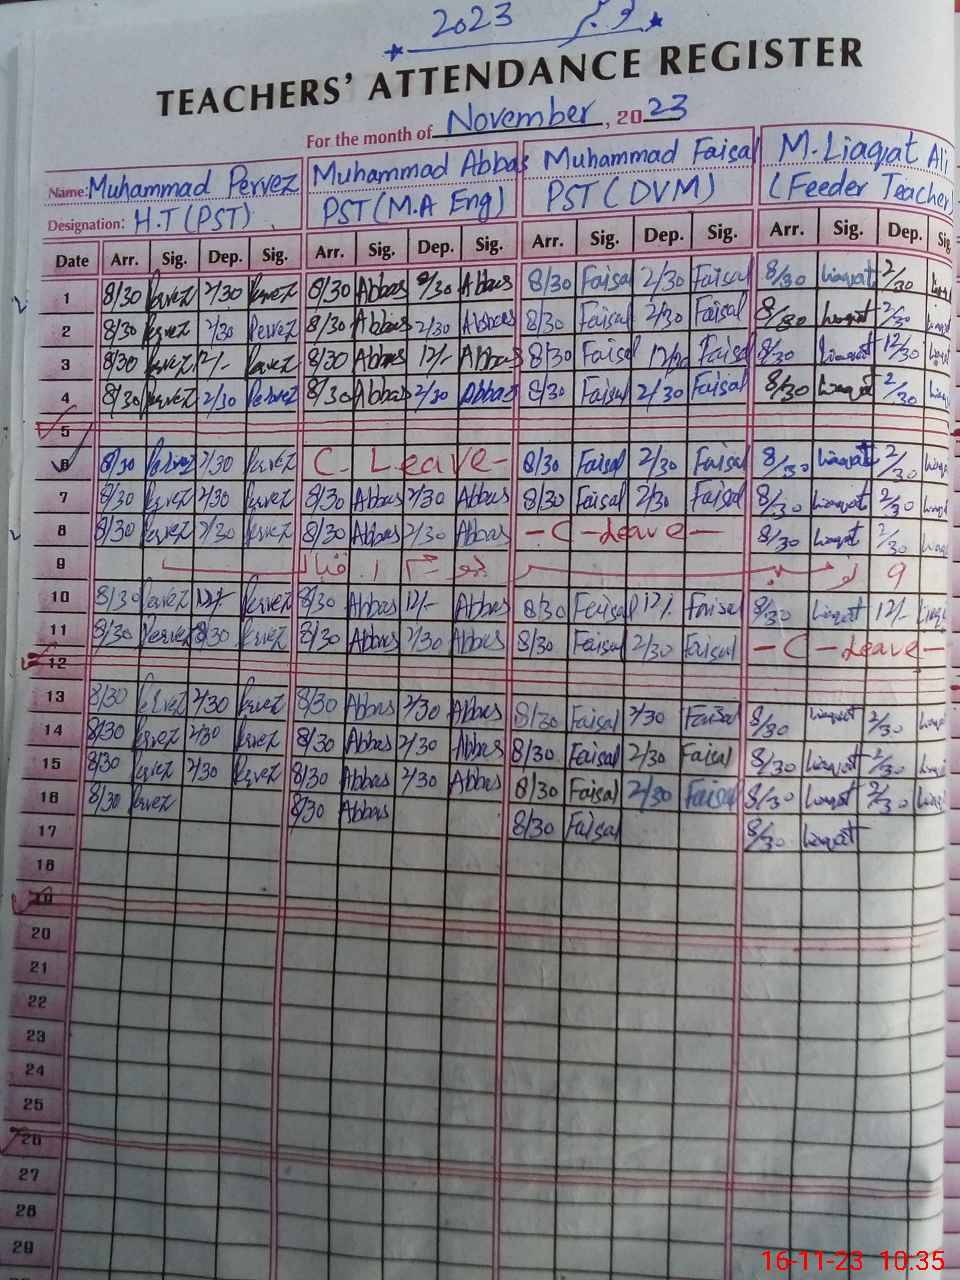 2023 نومبر
TEACHERS' ATTENDANCE REGISTER
For the month of November, 2023
Name: Muhammad Pervez Muhammad Abbas Muhammad Faisal M. Liaqat Ali
Designation: H.T (PST) PST (M.A Eng) PST (DVM) (Feeder Teacher)
Date Arr. Sig. Dep. Sig. Arr. Sig. Dep. Sig. Arr. Sig. Dep. Sig. Arr. Sig. Dep. Sig.
1 8/30 Pervez 2/30 Pervez 8/30 Abbas 2/30 Abbas 8/30 Faisal 2/30 Faisal 8/30 Liaqat 2/30
2 8/30 Pervez 2/30 Pervez 8/30 Abbas 2/30 Abbas 8/30 Faisal 2/30 Faisal 8/30 Liaqat 2/30
3 8/30 Pervez 12/- Pervez 8/30 Abbas 12/- Abbas 8/30 Faisal Faisal 8/30 Liaqat 12/30
4 8/30 Pervez 2/30 Pervez 8/30 Abbas 2/30 Abbas 8/30 Faisal 2/30 Faisal 8/30 Liaqat 2/30
5
6 8/30 Pervez 2/30 Pervez C. Leave- 8/30 Faisal 2/30 Faisal 8/30 Liaqat 2/30
7 8/30 Pervez 2/30 Pervez 8/30 Abbas 2/30 Abbas 8/30 Faisal 2/30 Faisal 8/30 Liaqat 2/30
8 8/30 Pervez 2/30 Pervez 8/30 Abbas 2/30 Abbas -C-Leave- 8/30 Liaqat 2/30
9 یوم اقبال 9 نومبر
10 8/30 Pervez 12/- Pervez 8/30 Abbas 12/- Abbas 8/30 Faisal 12/- Faisal 8/30 Liaqat 12/-
11 8/30 Pervez 2/30 Pervez 8/30 Abbas 2/30 Abbas 8/30 Faisal 2/30 Faisal -C-Leave-
12
13 8/30 Pervez 2/30 Pervez 8/30 Abbas 2/30 Abbas 8/30 Faisal 2/30 Faisal 8/30 Liaqat 2/30
14 8/30 Pervez 2/30 Pervez 8/30 Abbas 2/30 Abbas 8/30 Faisal 2/30 Faisal 8/30 Liaqat 2/30
15 8/30 Pervez 2/30 Pervez 8/30 Abbas 2/30 Abbas 8/30 Faisal 2/30 Faisal 8/30 Liaqat 2/30
16 8/30 Pervez 8/30 Abbas 8/30 Faisal 8/30 Liaqat
17
18
19
20
21
22
23
24
25
26
27
28
29
16-11-23 10:35